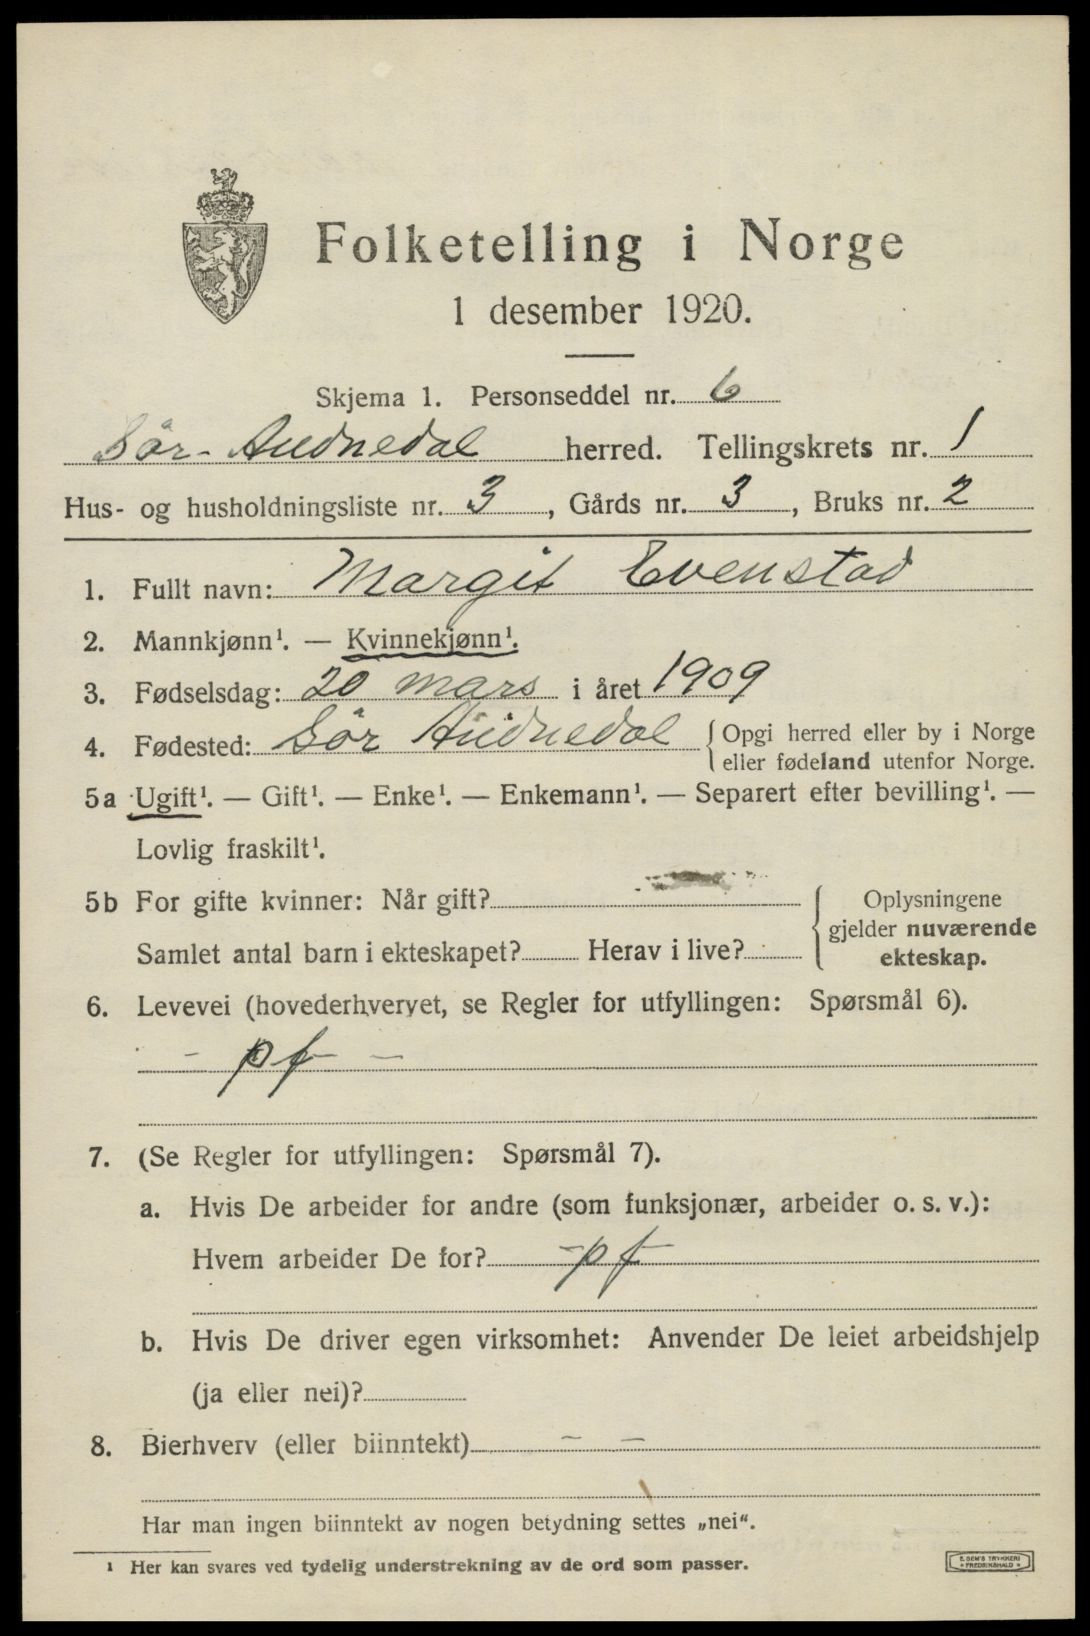 Folketelling i Norge
1 desember 1920.
Skjema 1. Personseddel nr. 6
Sör-Audnedal herred. Tellingskrets nr. 1
Hus- og husholdningsliste nr. 3, Gårds nr. 3, Bruks nr. 2
1. Fullt navn: Margit Evenstad
2. Mannkjønn¹. — Kvinnekjønn¹.
3. Fødselsdag: 20 mars i året 1909
4. Fødested: Sör Audnedal { Opgi herred eller by i Norge
eller fødeland utenfor Norge.
5a Ugift¹. — Gift¹. — Enke¹. — Enkemann¹. — Separert efter bevilling¹. —
Lovlig fraskilt¹.
5b For gifte kvinner: Når gift?
Samlet antal barn i ekteskapet? Herav i live?
{ Oplysningene
gjelder nuværende
ekteskap.
6. Levevei (hovederhvervet, se Regler for utfyllingen: Spørsmål 6).
- pf -
7. (Se Regler for utfyllingen: Spørsmål 7).
a. Hvis De arbeider for andre (som funksjonær, arbeider o. s. v.):
Hvem arbeider De for? -pf-
b. Hvis De driver egen virksomhet: Anvender De leiet arbeidshjelp
(ja eller nei)?
8. Bierhverv (eller biinntekt) - -
Har man ingen biinntekt av nogen betydning settes „nei“.
¹ Her kan svares ved tydelig understrekning av de ord som passer.
E. SEM'S TRYKKERI
FREDRIKSHALD